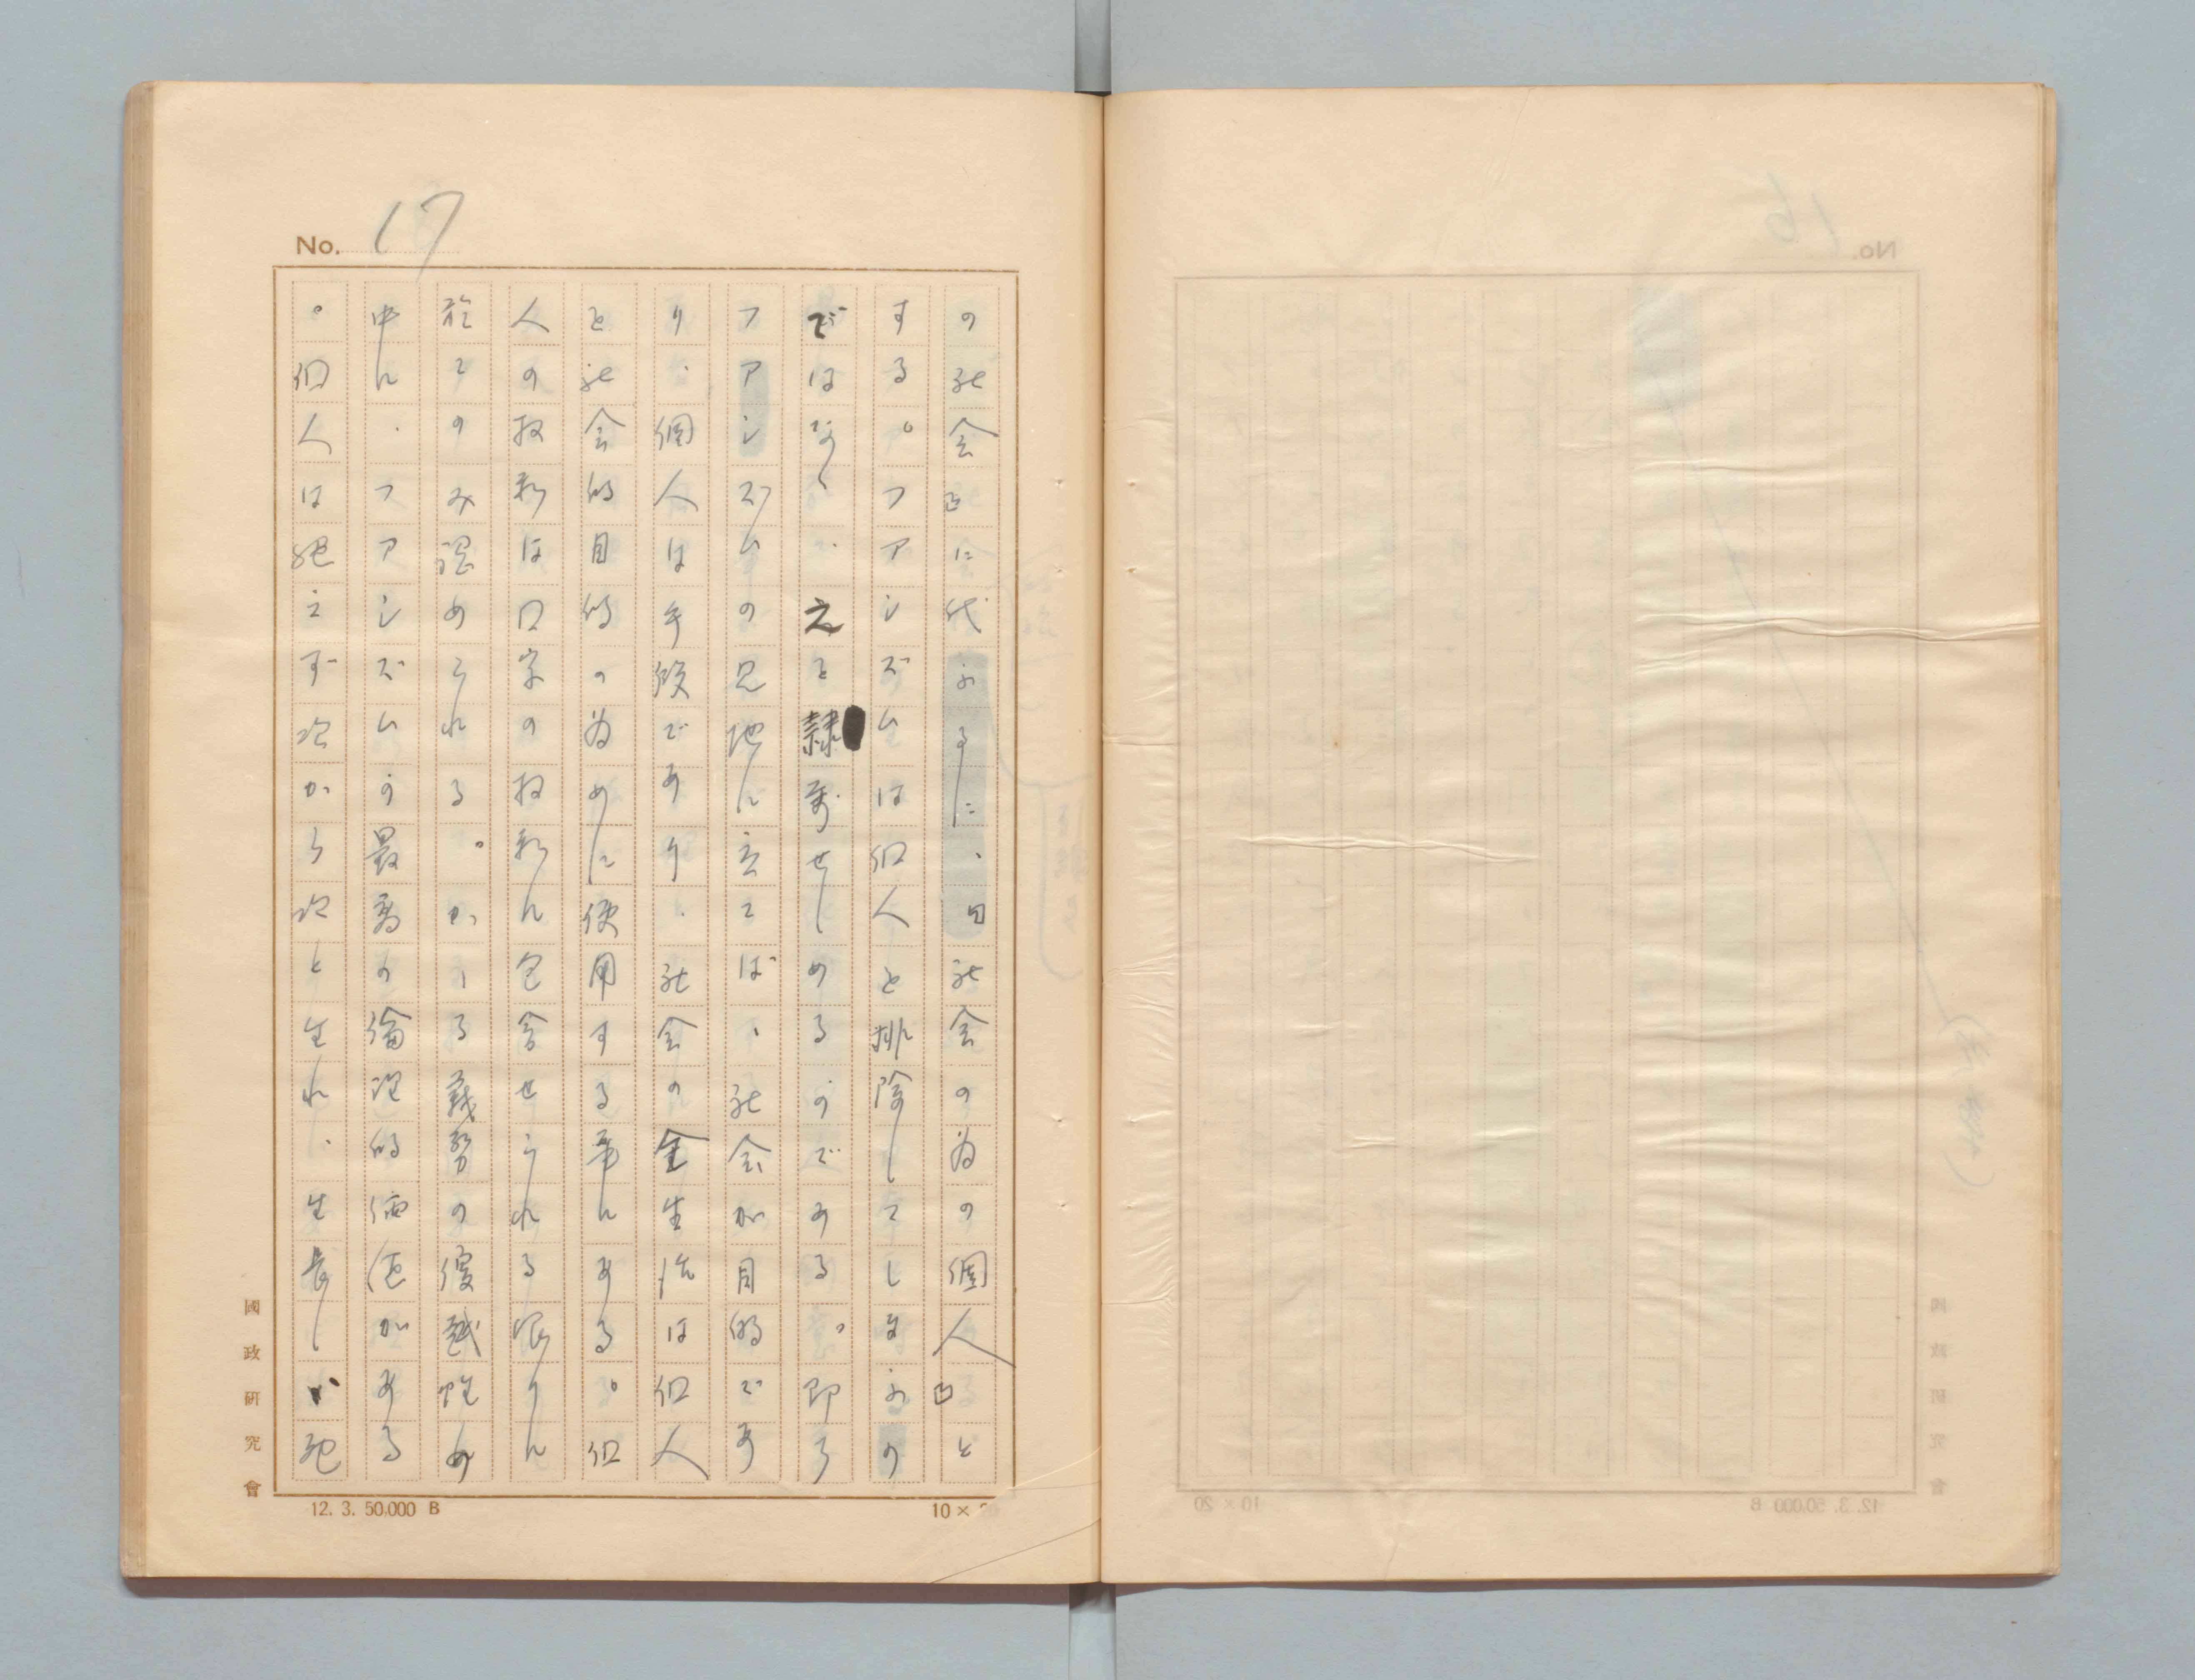 No. 17
の社会」に代ふるに、「社会の為の個人」と
する。フアシズムは個人を排除してしまふの
ではなく、之を隷属せしめるのである。即ち
フアシズムの見地に立てば、社会が目的であ
り、個人は手段であり、社会の全生活は個人
を社会的目的の為めに使用する事にある。個
人の権利は国家の権利に包含せられる限りに
於てのみ認められる。かゝる義務の優越性の
中に、フアシズムの最高の倫理的価値がある
。個人は絶えず次から次と生れ、生長し、死
國政研究會
12. 3. 50,000 B
10 ×